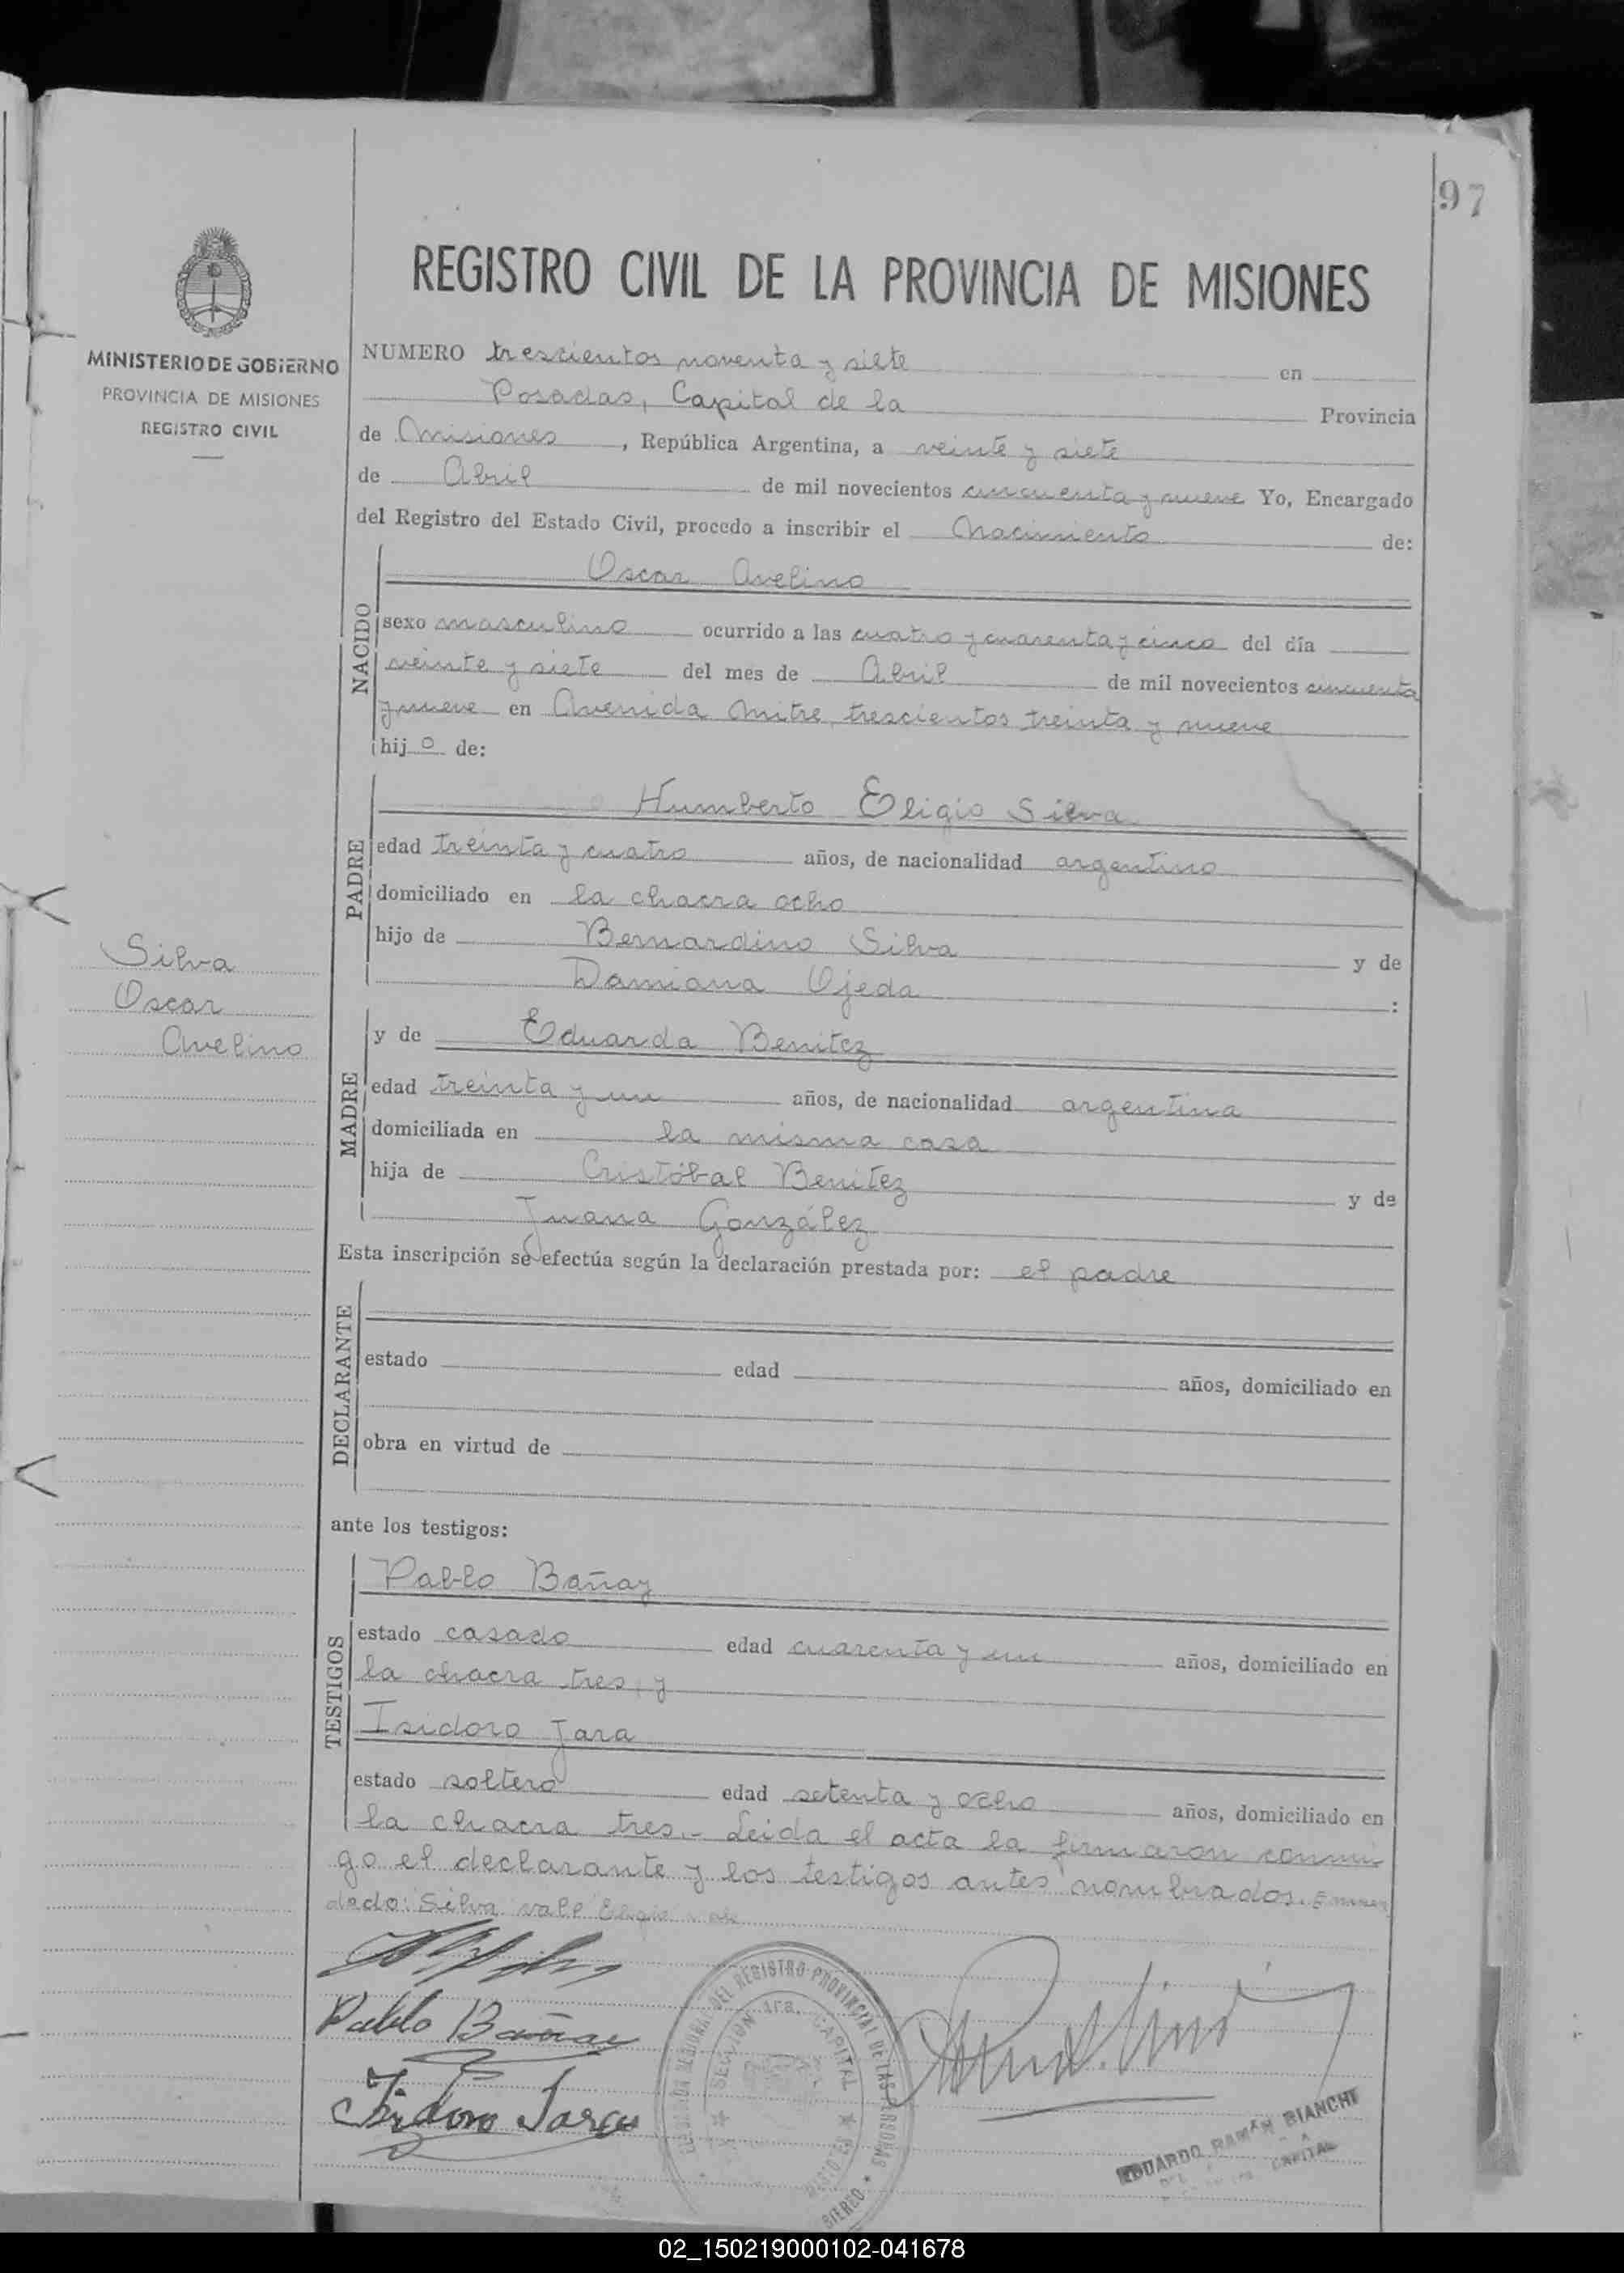 97
REGISTRO CIVIL DE LA PROVINCIA DE MISIONES
MINISTERIO DE GOBIERNO
PROVINCIA DE MISIONES
REGISTRO CIVIL
NUMERO trescientos noventa y siete en
Posadas, Capital de la Provincia
de Misiones, República Argentina, a veinte y siete
de Abril de mil novecientos cincuenta y nueve Yo, Encargado
del Registro del Estado Civil, procedo a inscribir el Nacimiento de:
NACIDO
Oscar Avelino
sexo masculino ocurrido a las cuatro y cuarenta y cinco del día
veinte y siete del mes de Abril de mil novecientos cincuenta
y nueve en Avenida Mitre, trescientos treinta y nueve
hijo de:
PADRE
Humberto Eligio Silva
edad treinta y cuatro años, de nacionalidad argentino
domiciliado en la chacra ocho
hijo de Bernardino Silva y de
Damiana Ojeda :
Silva
Oscar
Avelino
MADRE
y de Eduarda Benitez
edad treinta y un años, de nacionalidad argentina
domiciliada en la misma casa
hija de Cristóbal Benitez y de
Juana González
Esta inscripción se efectúa según la declaración prestada por: el padre
DECLARANTE
estado edad años, domiciliado en
obra en virtud de
ante los testigos:
TESTIGOS
Pablo Bañay
estado casado edad cuarenta y un años, domiciliado en
la chacra tres, y
Isidoro Jara
estado soltero edad setenta y ocho años, domiciliado en
la chacra tres.- Leida el acta la firmaron conmi
go el declarante y los testigos antes nombrados. Enmen
dado: Silva vale Eligio vale
Pablo Bañay
Isidoro Jara
DEL REGISTRO PROVINCIAL DE LAS PERSONAS
SECCION 1ra. CAPITAL
EDUARDO RAMÓN BIANCHI
CAPITAL
02_150219000102-041678